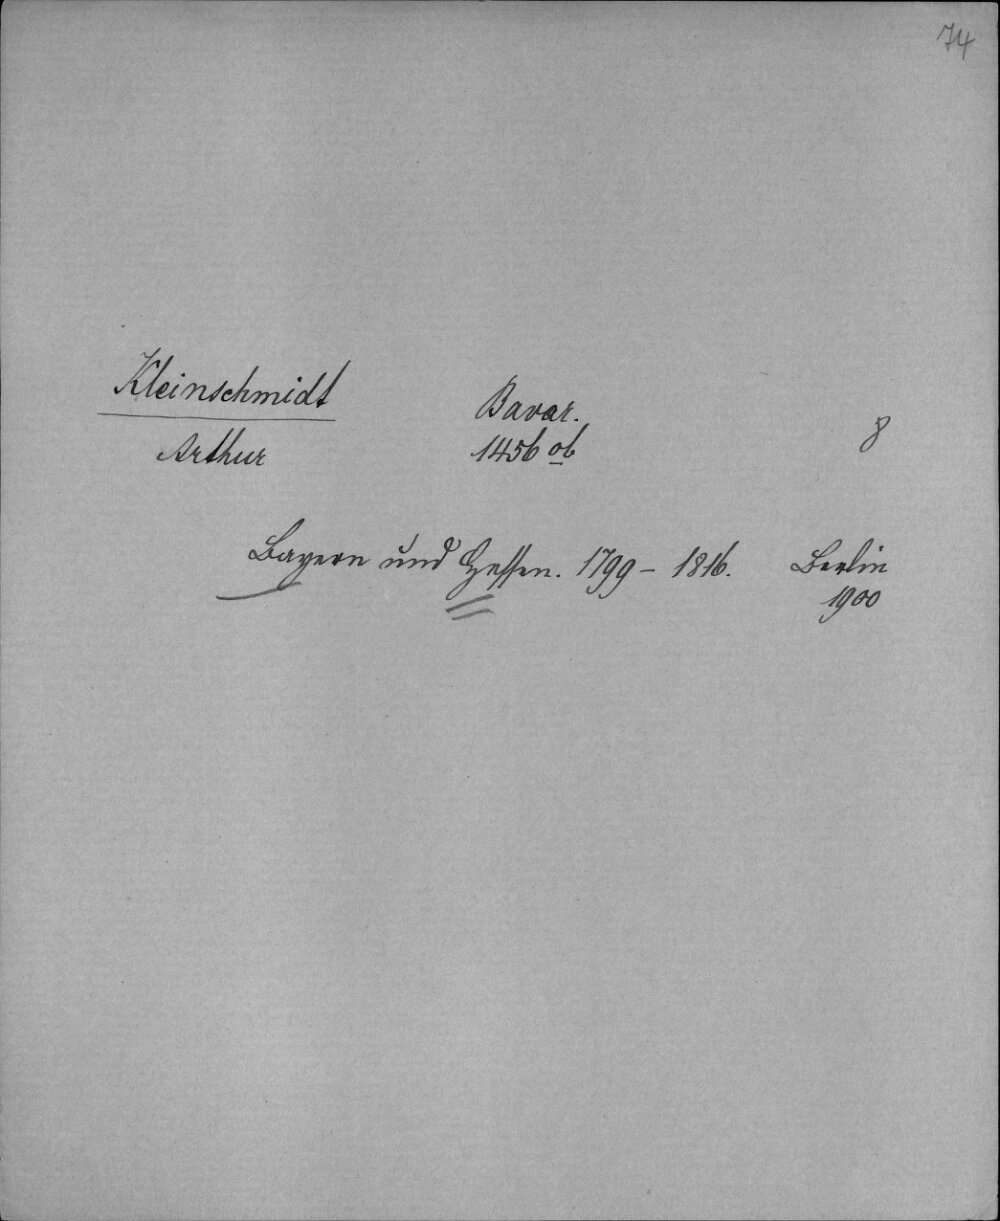 74
Kleinschmidt
Bavar.
Arthur
1456 ob
8
Bayern und Hessen. 1799 - 1816.
Berlin
1900